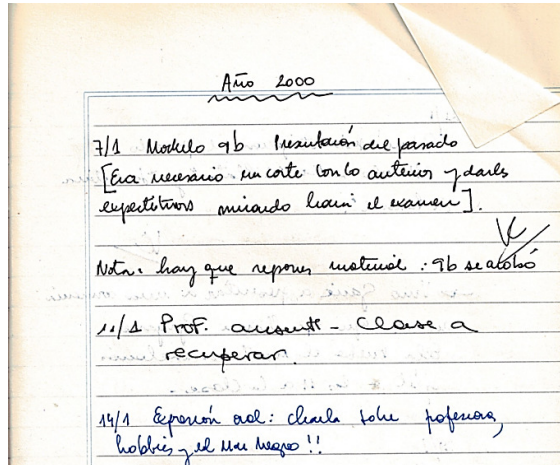 Año 2000
7/1 Modulo 9b Presentación del pasado
[Era necesario un corte con lo anterior y darles
expectativas mirando hacia el examen].
Nota: hay que reponer material: 9b se acabó
11/1 Prof. ausente - Clase a
recuperar.
14/1 Expresión oral: charla sobre profesiones,
hobbies y el Mar Negro!!